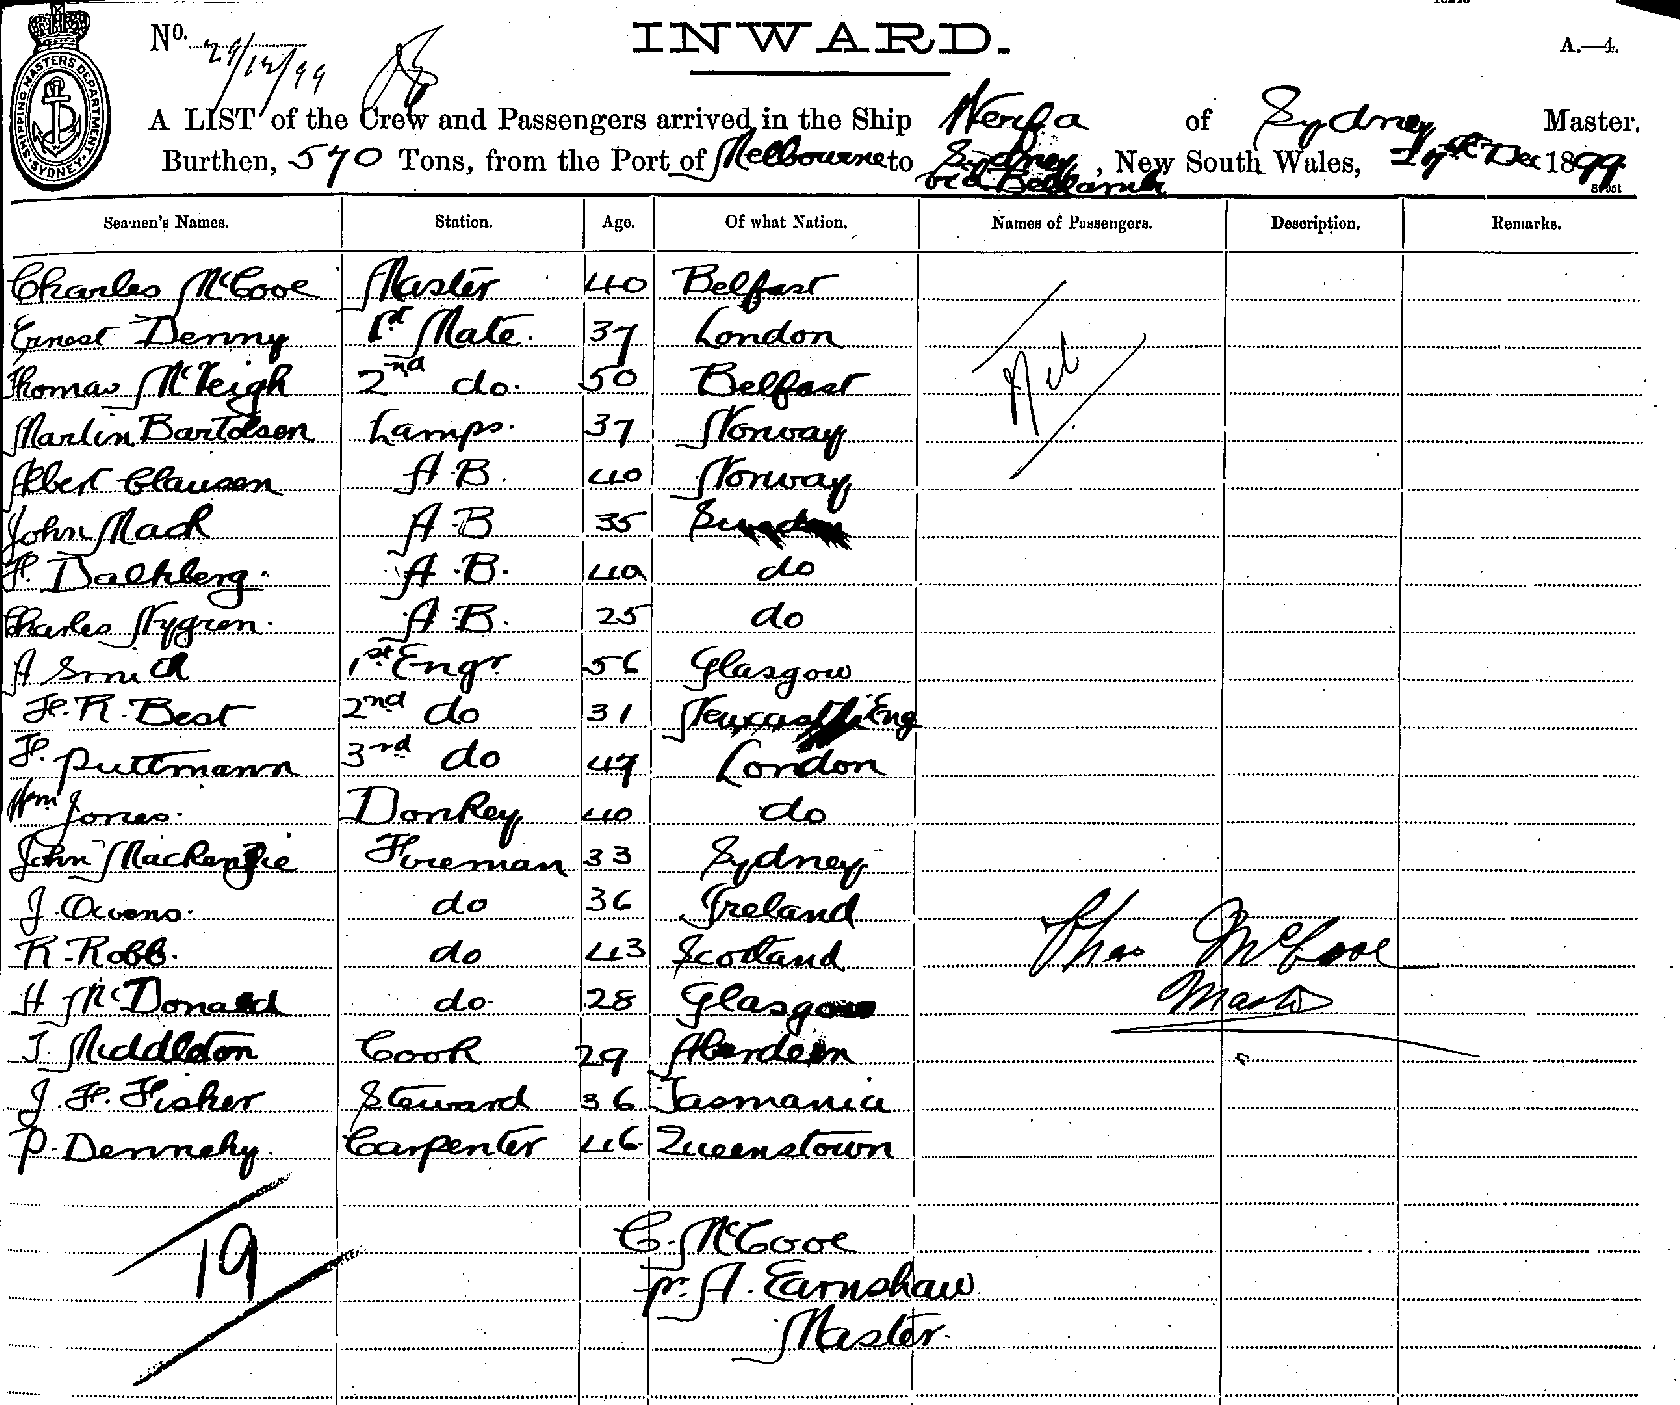 No. 29/12/99
INWARD.
A.—4.
SHIPPING MASTERS DEPARTMENT. SYDNEY.
A LIST of the Crew and Passengers arrived in the Ship of Sydney Master.
Burthen, 570 Tons, from the Port of Melbourne to Sydney, New South Wales, Dec 1899
Seamen's Names. Station. Age. Of what Nation. Names of Passengers. Description. Remarks.
Charles McCooe Master 40 Belfast
Ernest Denny 1st Mate. 37 London
Thomas McVeigh 2nd do. 50 Belfast
Nil
Martin Bartolsen Lamps. 37 Norway
Albert Clausen A.B. 40 Norway
John Mack A.B 35
F. Dalhberg. A.B. 40 do
Charles Nygren. A.B. 25 do
A Smith 1st Engr 56 Glasgow
F. R. Best 2nd do 31 Newcastle Eng
F. Puttmann 3rd do 47 London
Wm Jones. Donkey 40 do
John Mackenzie Fireman 33 Sydney
J. Owens. do 36 Ireland
R. Robb. do 43 Scotland
Chas McCooe
H McDonald do. 28 Glasgow
Master
T. Middleton Cook 29 Aberdeen
J. F. Fisher Steward 36 Tasmania
P. Dennehy. Carpenter 46 Queenstown
19
C. McCooe
pr. A. Earnshaw
Master.